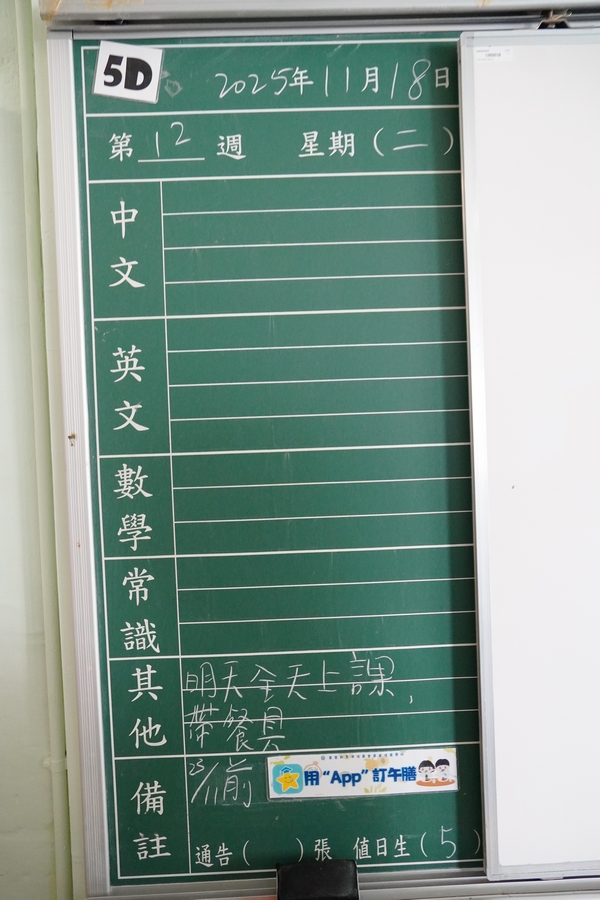 5D
2025年11月18日
第12週 星期(二)
中文
英文
數學
常識
其他 明天全天上課,
帶餐具
備註 25/11前
用“App”訂午膳
通告( )張 值日生(5)